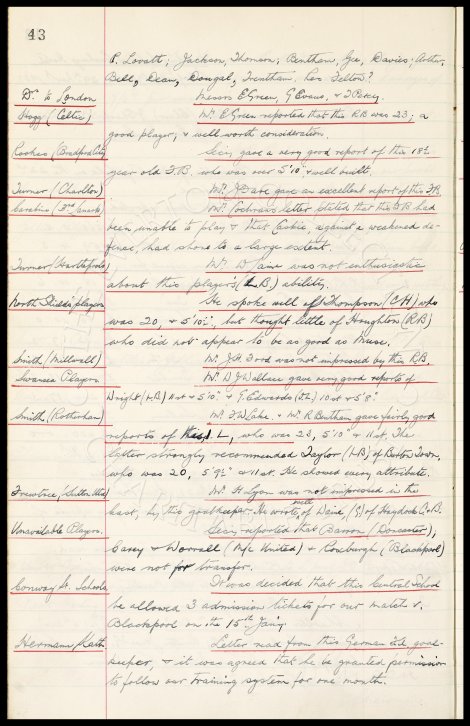 43
P. Lovatt, Jackson, Thomson, Bentham, Gee, Davies, Arthur
Bell, Dean, Dougal, Trentham, Les Fellow?
Dr. to London Messrs E Green, G Evans, & T Percy.
Hogg (Celtic) Mr. E Green reported that this RB was 23; a
good player, & well worth consideration.
Rookes (Bradford City) Secy. gave a very good report of this 18½
year old F.B. who was over 5'10" & well built.
Turner (Charlton) Mr. gave an excellent report of this F.B.
Carabine (3rd Lanark) Mr. Cochran's letter stated that this FB had
been unable to play & that Caskie, against a weakened de-
fence, had shone to a large extent.
Turner (Hartlepools) Mr. D was not enthusiastic
about this player's (L.B.) ability.
North Shields players He spoke well of Thompson (CH) who
was 20, & 5'10½", but thought little of Houghton (RB)
who did not appear to be as good as
Smith (Millwall) Mr. J.H. Ford was not impressed by this R.B.
Swansea Players Mr. D J Wallace gave very good reports of
Wright (LB) 11 st & 5'10" & J. Edwards 10 st & 5'8".
Smith (Rotherham) Mr. T. W. & Mr. R Bentham gave fairly good
reports of this L, who was 23, 5'10" & 11 st. The
latter strongly recommended Taylor (LB) of Burton Town,
who was 20, 5'9½" & 11 st. He showed every attribute.
Trewhee, Sutton Utd Mr. H. Lyon was not impressed in the
least, by this goalkeeper. He wrote well of Dane of Haydock C. & B.
Unavailable Players. Secy. reported that Barron (Doncaster),
Carey & Worrall (M/c United) & (Blackpool)
were not for transfer.
Conway St. Schools It was decided that this Central School
be allowed 3 admission tickets for our match v.
Blackpool on the 15th Jan'y.
Hermann, Karl Letter read from this German goal-
keeper, & it was agreed that he be granted permission
to follow our training system for one month.